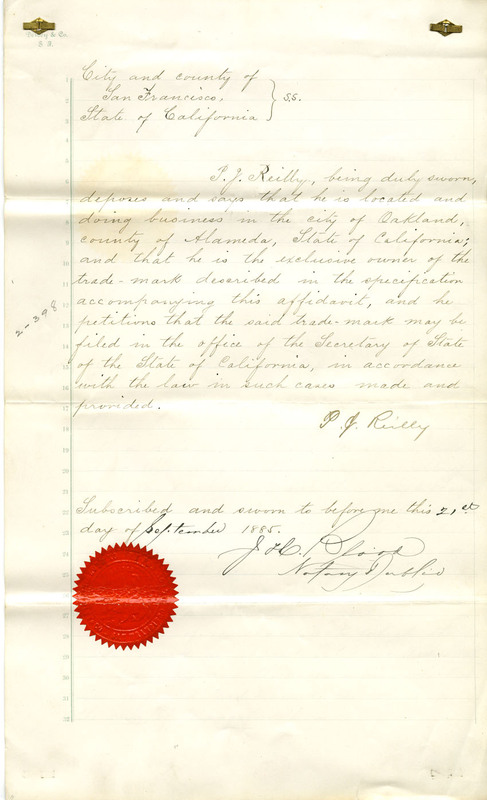 City and county of
San Francisco, } ss.
State of California
P. J. Reilly, being duly sworn,
deposes and says that he is located and
doing business in the city of Oakland,
county of Alameda, State of California;
and that he is the exclusive owner of the
trade-mark described in the specification
accompanying this affidavit, and he
petitions that the said trade-mark may be
filed in the office of the Secretary of State
of the State of California, in accordance
with the law in such cases made and
provided.
P. J. Reilly
2-398
Subscribed and sworn to before me this 21st
day of September 1885.
J. H.
Notary Public